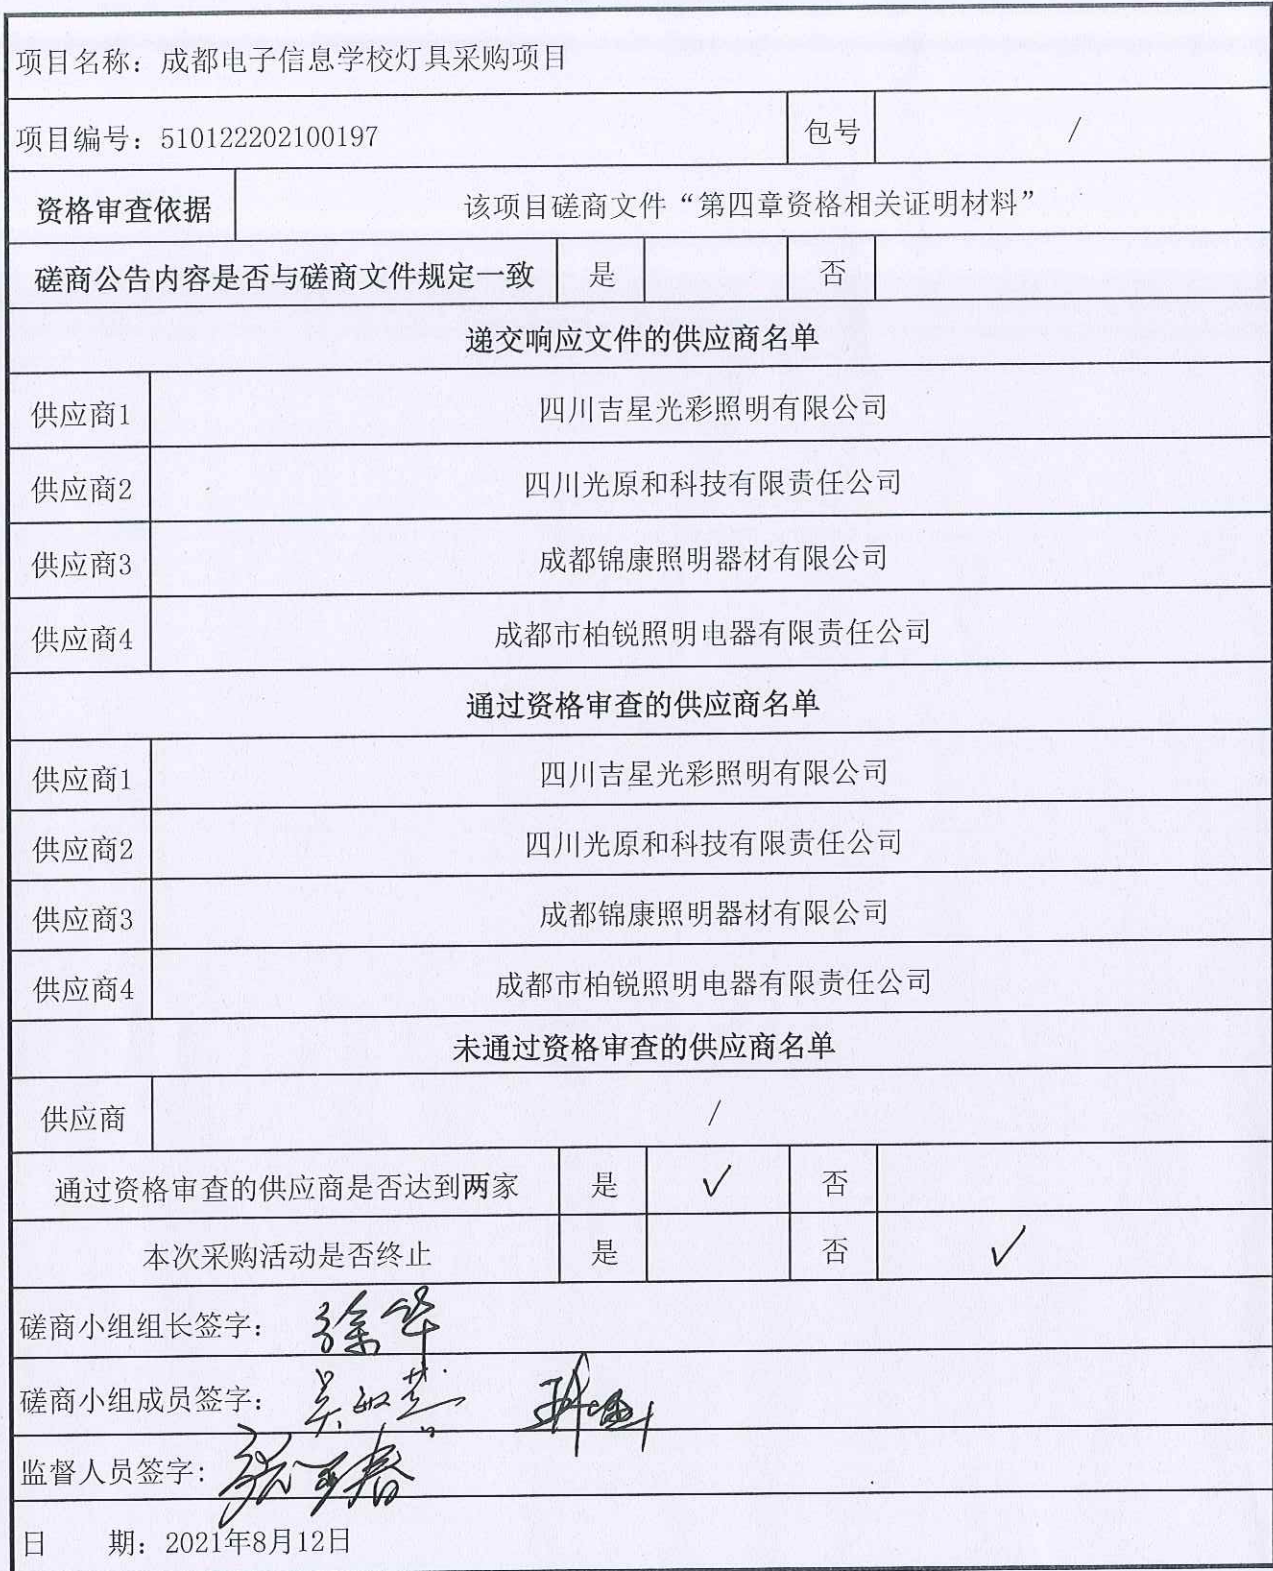 项目名称：成都电子信息学校灯具采购项目
项目编号：510122202100197 包号 /
资格审查依据 该项目磋商文件“第四章资格相关证明材料”
磋商公告内容是否与磋商文件规定一致 是 否
递交响应文件的供应商名单
供应商1 四川吉星光彩照明有限公司
供应商2 四川光原和科技有限责任公司
供应商3 成都锦康照明器材有限公司
供应商4 成都市柏锐照明电器有限责任公司
通过资格审查的供应商名单
供应商1 四川吉星光彩照明有限公司
供应商2 四川光原和科技有限责任公司
供应商3 成都锦康照明器材有限公司
供应商4 成都市柏锐照明电器有限责任公司
未通过资格审查的供应商名单
供应商 /
通过资格审查的供应商是否达到两家 是 ✓ 否
本次采购活动是否终止 是 否 ✓
磋商小组组长签字： 徐华
磋商小组成员签字： 吴敏慧
监督人员签字：
日 期：2021年8月12日